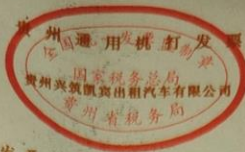 贵州通用机打发票
全国统一发票监制章
国家税务总局
贵州兴筑凯宾出租汽车有限公司
贵州省税务局